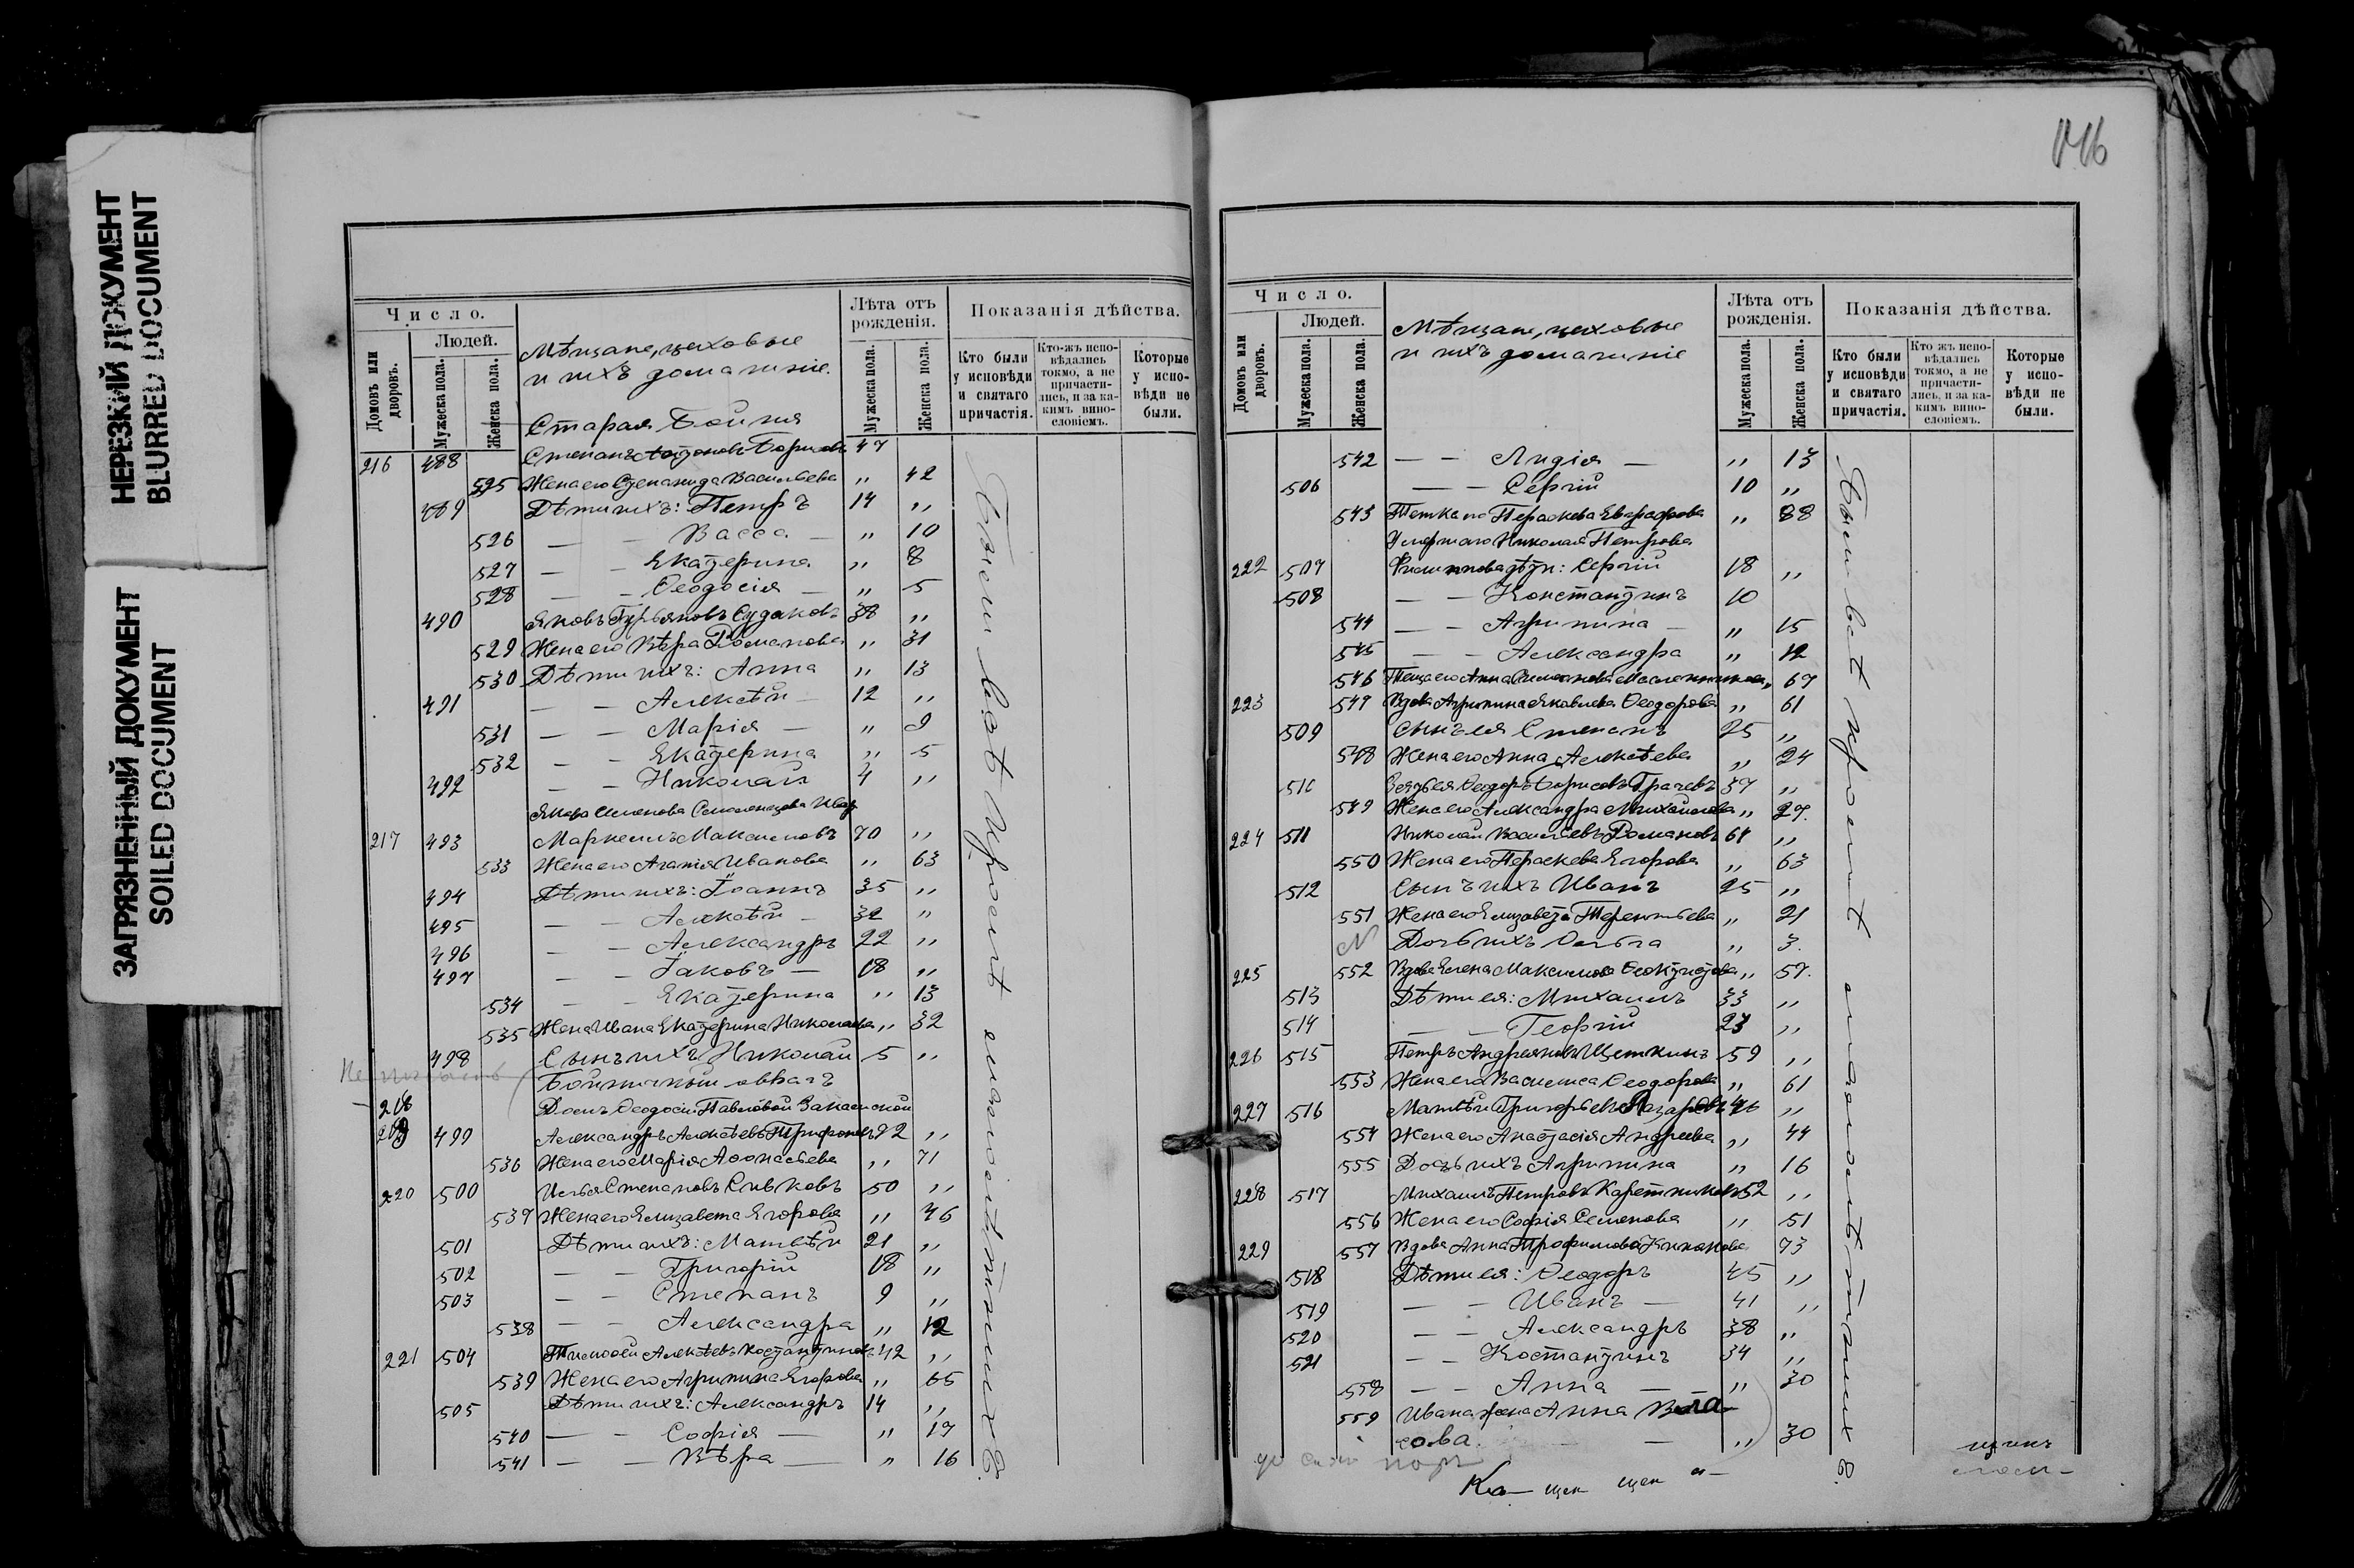 НЕРЕЗКИЙ ДОКУМЕНТ
BLURRED DOCUMENT
ЗАГРЯЗНЕННЫЙ ДОКУМЕНТ
SOILED DOCUMENT
Число.
Домовъ или дворовъ.
Людей.
Мужеска пола.
Женска пола.
Мѣщане, цеховые
и ихъ домашніе.
Лѣта отъ рожденія.
Мужеска пола.
Женска пола.
Показанія дѣйства.
Кто были у исповѣди и святаго причастія.
Кто-жъ исповѣдались токмо, а не причастились, и за какимъ винословіемъ.
Которые у исповѣди не были.
Старая Бойня
216 488 Степанъ Борисовъ 47
525 Жена его Степанида Васильева „ 42
489 Дѣти ихъ: Петръ 14 „
526 — — Васса — „ 10
527 — — Екатерина „ 8
528 — — Ѳеодосія — „ 5
490 Яковъ Гурьяновъ Судаковъ 38 „
529 Жена его Вѣра Романова „ 31
530 Дѣти ихъ: Анна „ 13
491 — — Алексѣй — 12 „
531 — — Марія — „ 9
532 — — Екатерина „ 5
492 — — Николай 4 „
Якова Семенова
217 493 Маркеллъ Максимовъ 70 „
533 Жена его Агапія Иванова „ 63
494 Дѣти ихъ: Іоаннъ 35 „
495 — — Алексѣй — 32 „
496 — — Александръ 22 „
497 — — Іаковъ — 18 „
534 — — Екатерина „ 13
535 Жена Ивана Екатерина Николаева „ 32
498 Сынъ ихъ Николай 5 „
Бойничный оврагъ
218 Домъ Ѳеодосіи Павловой
219 499 Александръ Алексѣевъ Трифоновъ 72 „
536 Жена его Марія Аѳонасьева „ 71
220 500 Илья Степановъ Сивковъ 50 „
537 Жена его Елизавета Егорова „ 46
501 Дѣти ихъ: Матвѣй 21 „
502 — — Григорій 18 „
503 — — Степанъ 9 „
538 — — Александра „ 12
221 504 Тимоѳей Алексѣевъ Костантиновъ 42 „
539 Жена его Агрипина Егорова „ 65
505 Дѣти ихъ: Александръ 14 „
540 — — Софія — „ 17
541 — — Вѣра — „ 16
146
Число.
Домовъ или дворовъ.
Людей.
Мужеска пола.
Женска пола.
Мѣщане, цеховые
и ихъ домашніе
Лѣта отъ рожденія.
Мужеска пола.
Женска пола.
Показанія дѣйства.
Кто были у исповѣди и святаго причастія.
Кто жъ исповѣдались токмо, а не причастились, и за какимъ винословіемъ.
Которые у исповѣди не были.
542 — — Лидія — „ 13
506 — — Сергій 10 „
543 Тетка Пераскева Евграфова „ 88
Умершаго Николая Петрова
222 507 Филиппова дѣти: Сергій 18 „
508 — — Константинъ 10
544 — — Агрипина — „ 15
545 — — Александра „ 12
546 Теща его Анна „ 67
223 547 Вдова Агрипина Яковлева Ѳеодорова „ 61
509 Сынъ ея Степанъ 25 „
548 Жена его Анна Алексѣева „ 24
510 Зять ея Ѳеодоръ Борисовъ Грачевъ 37 „
549 Жена его Александра Михайлова „ 27.
224 511 Николай Васильевъ Романовъ 61 „
550 Жена его Пераскева Егорова „ 63
512 Сынъ ихъ Иванъ 25 „
551 Жена его Елизавета Терентьева „ 21
Дочь ихъ Ольга „ 3.
225 552 Вдова Елена Максимова Ѳеоктистова „ 57.
513 Дѣти ея: Михаилъ 33 „
514 — — Георгій 23 „
226 515 Петръ Андреяновъ Щеткинъ 59 „
553 Жена его Василиса Ѳеодорова „ 61
227 516 Матвѣй Григорьевъ Лазаревъ 46 „
554 Жена его Анастасія Андреева „ 44
555 Дочь ихъ Агрипина „ 16
228 517 Михаилъ Петровъ Каретниковъ 52 „
556 Жена его Софія Семенова „ 51
229 557 Вдова Анна Трофимова 73
518 Дѣти ея: Ѳеодоръ 45 „
519 — — Иванъ — 41 „
520 — — Александръ 38 „
521 — — Костантинъ 34 „
558 — — Анна — „ 30
559 Ивана жена Анна Вла-
сова. — „ 30